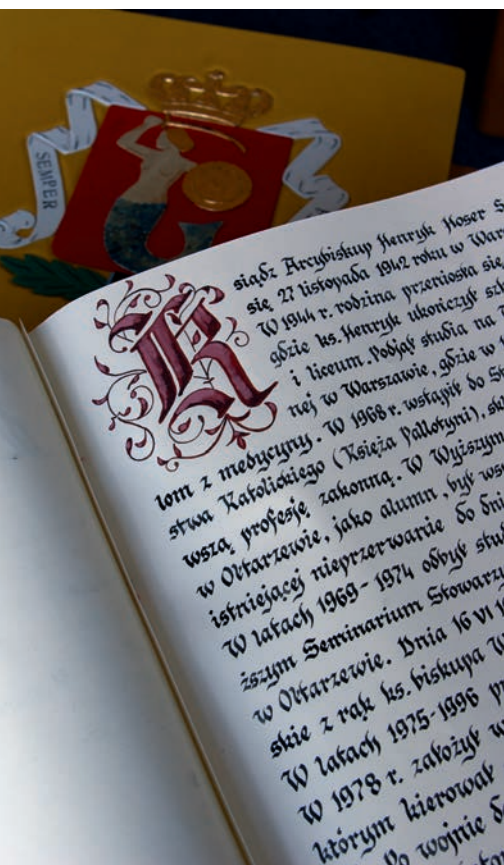 SEMPER
Ksiądz Arcybiskup Henryk Hoser S
się 27 listopada 1942 roku w War
W 1944 r. rodzina przeniosła się
gdzie ks. Henryk ukończył szk
i liceum. Podjął studia na
nej w Warszawie, gdzie w 1
lom z medycyny. W 1968 r. wstąpił do St
stwa Katolickiego (Księża Pallotyni), sk
wszą profesję zakonną. W Wyższym
w Ołtarzewie, jako alumn, był ws
istniejącej nieprzerwanie do dni
W latach 1969-1974 odbył stu
ższym Seminarium Stowarzy
w Ołtarzewie. Dnia 16 VI 1
skie z rąk ks. biskupa W
W latach 1975-1996 p
W 1978 r. założył w
którym kierował
Po wojnie d